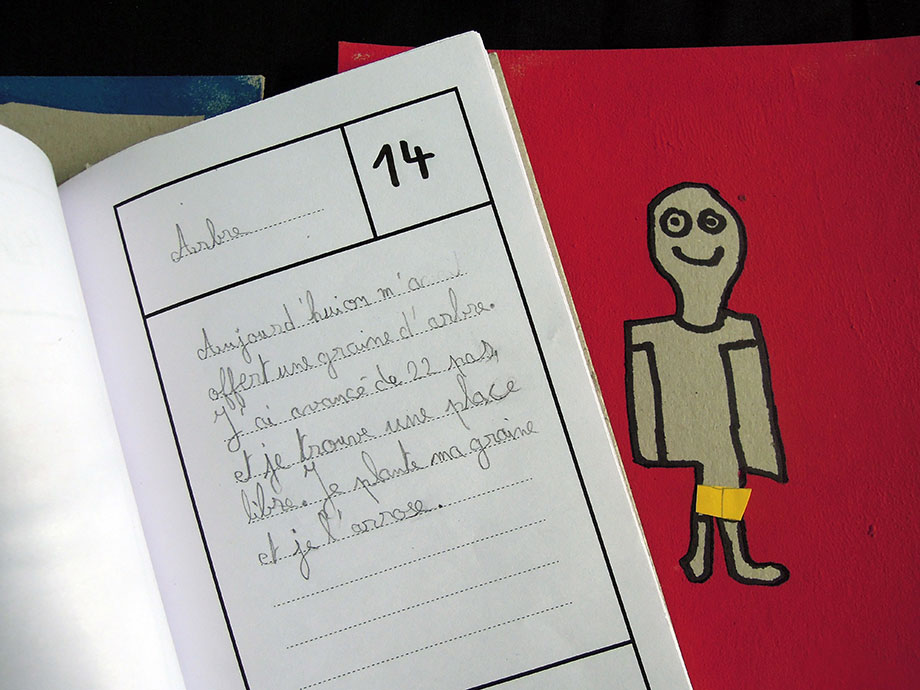 Arbre
14
Aujourd'hui on m'a
offert une graine d'arbre.
J'ai avancé de 22 pas,
et je trouve une place
libre. Je plante ma graine
et je l'arrose.